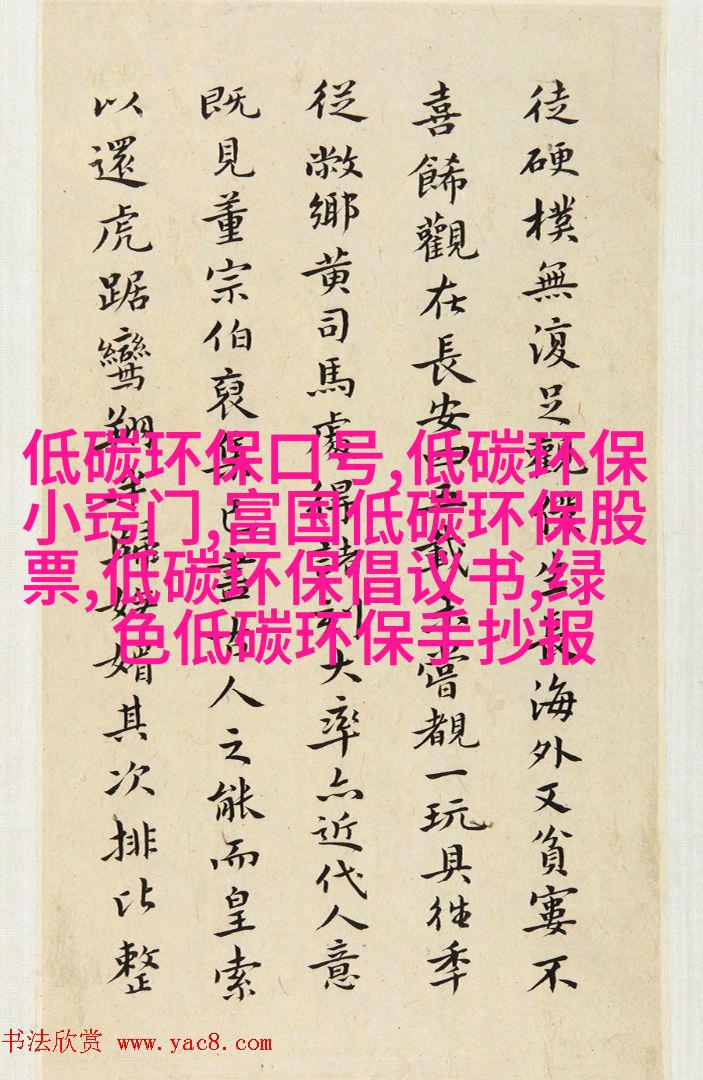 徒硬樸無復足觀保生長海外又貧窶不
喜餙觀在長安中五載未嘗覩一玩具往季
從敝鄉黄司馬處得諸刻大率亦近代人意
既見董宗伯裒集古畫始人之能而皇索
以還虎踞鸞翔筆歸妍媚其次排比整
低碳环保口号,低碳环保
小窍门,富国低碳环保股
票,低碳环保倡议书,绿
色低碳环保手抄报
书法欣赏 www.yac8.com